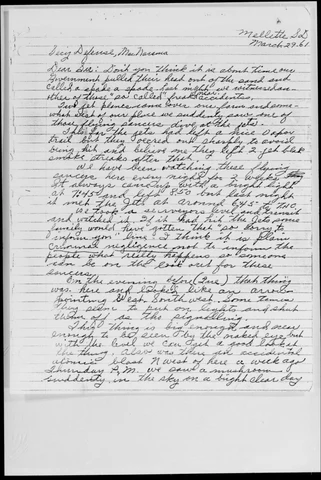 Mellette S.D
March 29-61
Dear Sir: Don't you think it is about time our
Government pulled their head out of the sand and
called a spade a spade. Last night we witnessed an-
other of those "so called" freak accidents.
Two jet planes came over our farm and some-
what West of our place we suddenly saw one of
those flying saucers
trail but they veered and sharply to avoid
being hit and believe me they left 2 jet black
smoke streaks after that.
We have been watching these flying
saucers here every night for 2 weeks
It always came up with a bright light
at 7:45 and left 8:50 but last night
it met the Jets at around 6:45
We took a surveyors level and transit
and watched it. If it had hit the Jet some
family would have gotten that "so sorry to
inform you" line. I think it is plain
criminal negligence not to inform the
people what really happens so someone
can be on the look out for these
saucers.
On the evening before (Tues) that thing
was here and looked like an arrow
pointing West South West. Some times
they seem to turn on lights and shut
them off as tho signalling.
This thing is big enough and near
enough to be seen by the naked eye but
with the level we can get a good look at
the thing. Also was there an accidental
atomic blast N West of here a week ago
Thursday P.M. we saw a mushroom
suddenly in the sky on a bright clear day